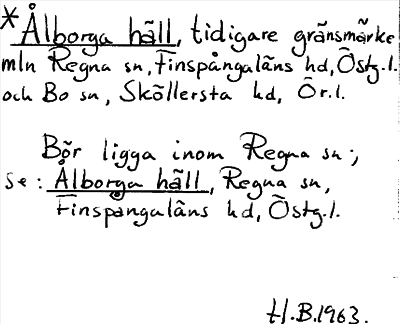 *Ålborga häll, tidigare gränsmärke
mln Regna sn, Finspångaläns hd, Östg.l.
och Bo sn, Sköllersta hd, Ör.l.
Bör ligga inom Regna sn;,
se: Ålborga häll, Regna sn,
Finspångaläns hd, Östg.l.
H.B.1963.